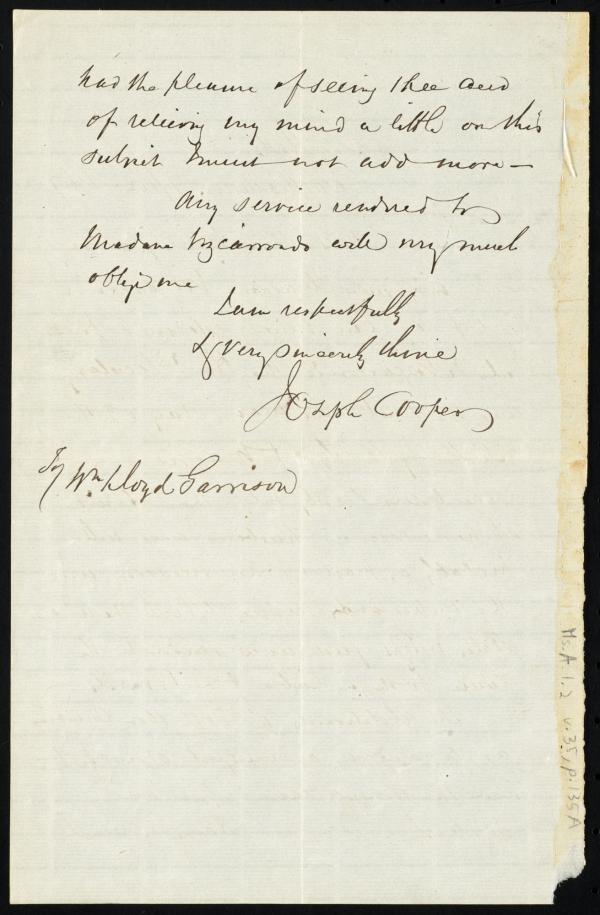 had the pleasure of seeing thee and
of relieving my mind a little on this
subject I must not add more —
Any service rendered to
Madame Vizcarrondo will very much
oblige me
I am respectfully
& very sincerely thine
Joseph Cooper
To Wm. Lloyd Garrison
Ms. A. 1. 2 v. 35, p. 135A